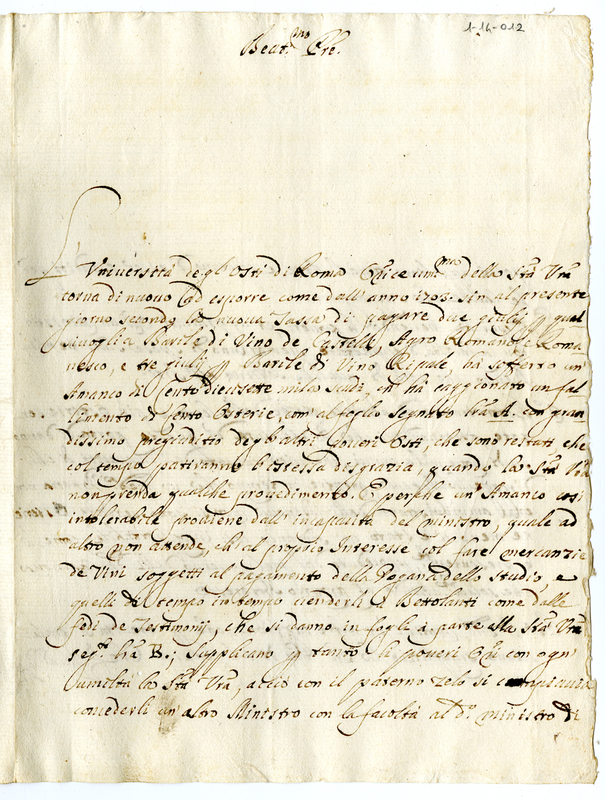 1-14-012
Beat.mo Pre.
L'Università degl'Osti di Roma della Stà Vra
torna di nuovo ad esporre come dall'anno 1703. sin al presente
giorno secondo la nuova Tassa di pagare due giulij p qual
sivoglia Barile di Vino de Castelli, Agro Romano, e Roma
nesco, e tre giulij p Barile di Vino Ripale, ha sofferto un
Amanco di cento diecisette mila scudi, ch' ha caggionato un fal
limento di cento Osterie, com' al foglio segnato lra A. con gran
dissimo pregiuditio degl'altri poveri Osti, che sono restati che
col tempo patiranno l'istessa disgrazia, quando la Stà Vra
non prenda qualche provedimento. E perche un' Amanco così
intolerabile proviene dall' incapacità del ministro, quale ad
altro non attende, ch' al proprio Interesse col fare mercanzie
de Vini soggetti al pagamento della Dogana dello Studio, e
quelli di tempo in tempo venderli a Bettolanti come dalle
fedi de Testimonij, che si danno in fogli à parte alla Stà Vra
seg.ti lra B.; Supplicano p tanto li poveri Ori con ogn'
umiltà la Stà Vra, acciò con il paterno zelo si compiaccia
concederli un' altro Ministro con la facoltà al d.o ministro di